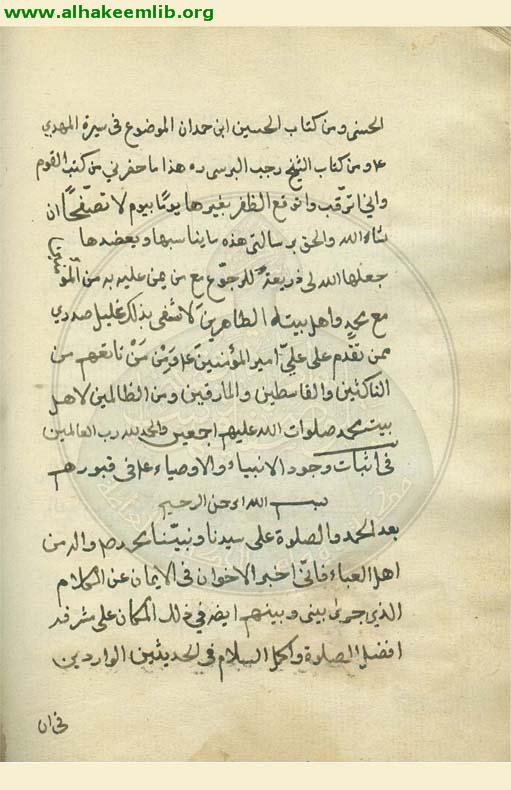 www.alhakeemlib.org
الحسنى ومن كتاب الحسين ابن حمدان الموضوع فى سيرة المهدي
ع ومن كتاب الشيخ رجب البرسى ره هذا ما حضرني من كتب القوم
وانى اترقب واتوقع الظفر بغيرها يومًا بيوم لا تصفّحها ان
شاء الله والحق برسالتى هذه ما يناسبها ويعضدها
جعلها الله لى ذريعة للرجوع مع من يمن عليه به من
مع محمد واهل بيته الطاهرين لاشفى بذلك غليل صدري
ممن تقدم على علىّ امير المؤمنين ع ومن تابعهم من
الناكثين والقاسطين والمارقين ومن الظالمين لاهل
بيت محمد صلوات الله عليهم اجمعين والحمد لله رب العالمين
فى اثبات وجود الانبياء والاوصياء ع فى قبورهم
بسم الله الرحمن الرحيم
بعد الحمد والصلوة على سيدنا ونبيّنا محمد ص واله من
اهل العباء فانّى اخبر الاخوان فى الايمان عن الكلام
الذي جرى بينى وبينهم ايضا فى ذلك المكان على مشرفه
افضل الصلوة واكمل السلام فى الحديثين الواردين
فى ان